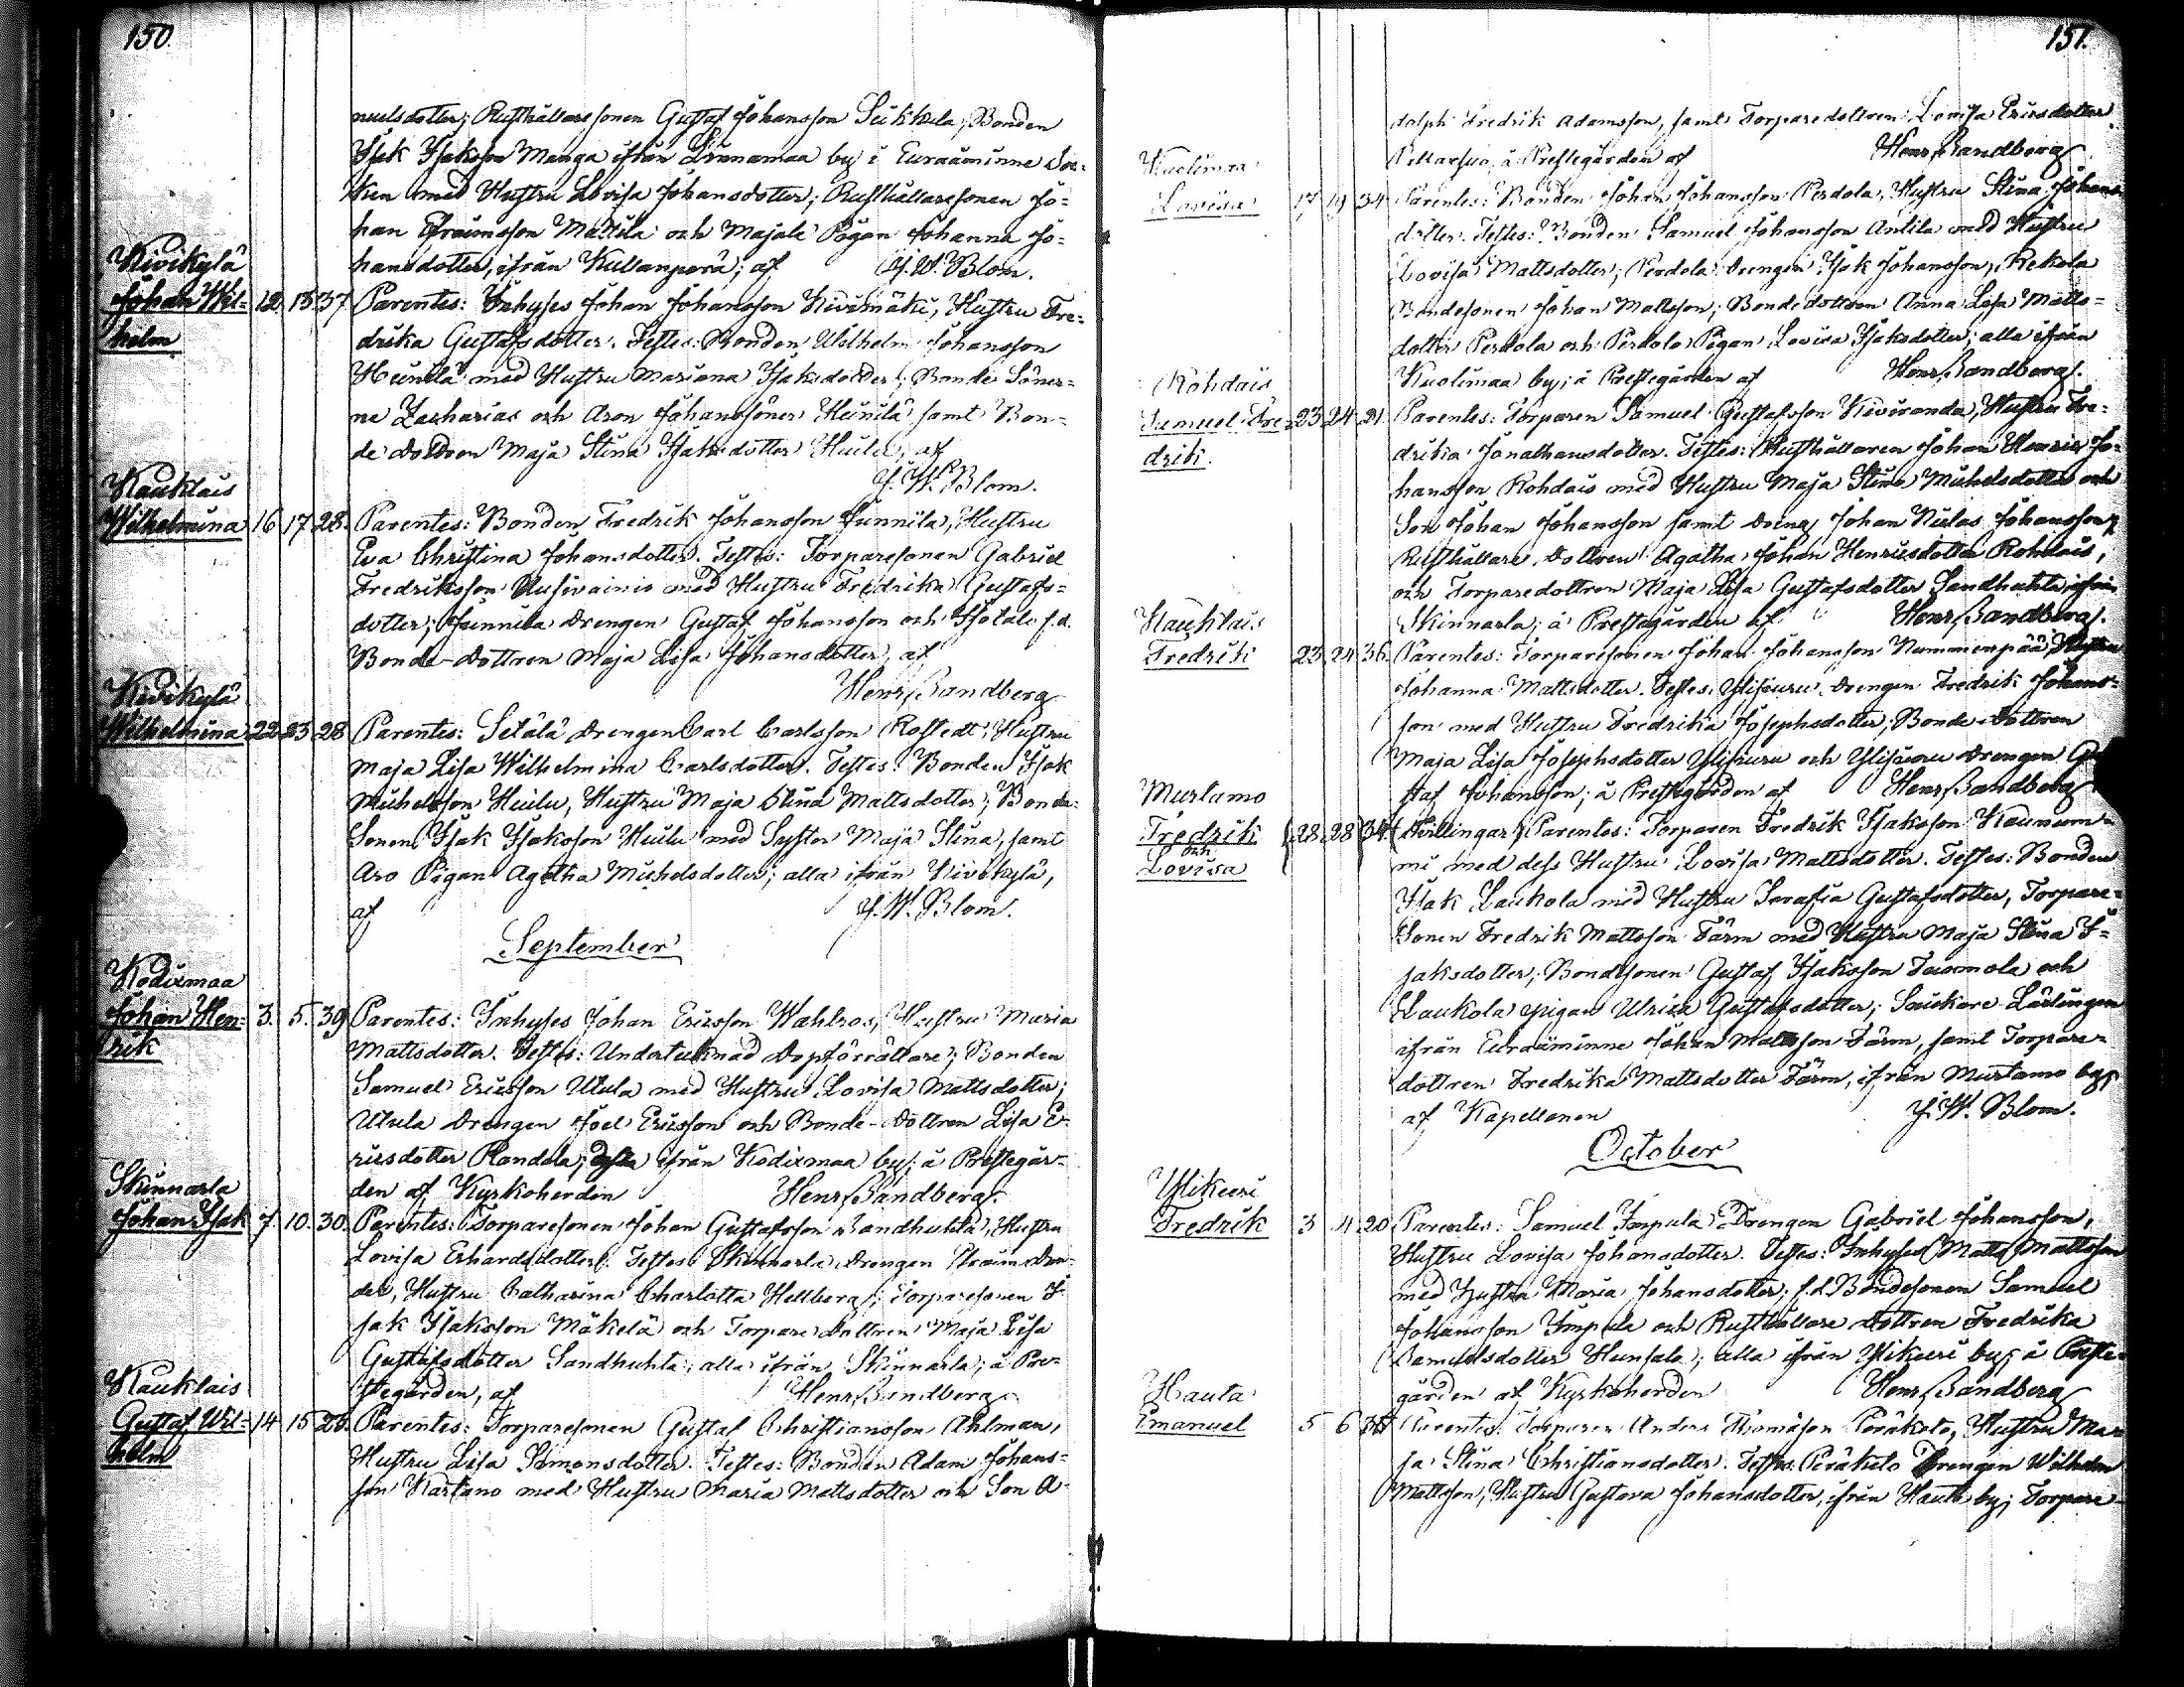 150.
nuelsdotter; Rusthållaresonen Gustaf Johansson Sukkala; Bonden
Isak Isaksson Manga ifrån Linnamaa by i Euraåminne Soc-
ken med Hustru Lovisa Johansdotter; Rusthållaresonen Jo-
han Efraimsson Mattila och Majala Pigan Johanna Jo-
hansdotter, ifrån Kullanperä; af J. W. Blom.
Kivikylä
Johan Wil- 12. 13 37. Parentes: Inhyses Johan Johansson Kivimäki, Hustru Fre-
helm
drika Gustafsdotter. Testes: Bonden Wilhelm Johansson
Heinilä med Hustru Mariana Isaksdotter; Bonde Söner-
ne Zacharias och Aron Johanssöner Heinilä samt Bon-
de dottren Maja Stina Isaksdotter Huilu; af
J. W. Blom.
Kauklais
Wilhelmina 16 17 28. Parentes: Bonden Fredrik Johansson Junnila, Hustru
Eva Christina Johansdotter. Testes: Torparesonen Gabriel
Fredriksson Uusivainio med Hustru Fredrika Gustafs-
dotter; Junnila drengen Gustaf Johansson och Isotalo f.d.
Bonde-dottren Maja Lisa Johansdotter, af
Henr. Sandberg
Kivikylä
Wilhelmina 22 23 28 Parentes: Setälä drengen Carl Carlsson Rostedt; Hustru
Maja Lisa Wilhelmina Carlsdotter. Testes: Bonden Isak
Michelsson Huilu, Hustru Maja Stina Mattsdotter; Bonde-
Sonen Isak Isaksson Huilu med Syster Maja Stina, samt
Aro Pigan Agatha Michelsdotter; alla ifrån Kivikylä,
af J. W. Blom.
September
Kodixmaa
Johan Hen- 3. 5. 39 Parentes: Inhyses Johan Ericsson Wahlros, Hustru Maria
rik
Mattsdotter. Testes: Undertecknad Dopförrättare; Bonden
Samuel Ericsson Utula med Hustru Lovisa Mattsdotter;
Utula drengen Joel Ericsson och Bonde-dottren Lisa E-
ricsdotter Randala; desse ifrån Kodixmaa by; å Prestegår-
den af Kyrkoherden Henr. Sandberg.
Skinnarla
Johan Isak 7. 10. 30. Parentes: Torparesonen Johan Gustafsson Sandhuhta, Hustru
Lovisa Erhardsdotter. Testes: Skinnarla drengen Efraim
der, Hustru Catharina Charlotta Hellberg; Torparesonen I-
sak Isaksson Mäkelä och Torpare dottren Maja Lisa
Gustafsdotter Sandhuhta; alla ifrån Skinnarla; å Pre-
stegården, af Henr. Sandberg
Kauklais
Gustaf Wil- 14 15 25. Parentes: Torparesonen Gustaf Christiansson Ahlman,
helm
Hustru Lisa Simonsdotter. Testes: Bonden Adam Johans-
son Kartano med Hustru Maria Mattsdotter och Son A-
151.
dolph Fredrik Adamsson, samt Torpare dottren Lovisa Ericsdotter
å Prestegården af Henr. Sandberg
Kuolimaa
Lovisa 17 19 34 Parentes: Bonden Johan Johansson Perdola, Hustru Stina Johans-
dotter. Testes: Bonden Samuel Johansson Antila med Hustru
Lovisa Mattsdotter; Perdola drengen Isak Johansson, Rekola
Bondesonen Johan Mattsson; Bonde dottren Anna Lisa Matts-
dotter Perdola och Perdola Pigan Lovisa Isaksdotter; alla ifrån
Kuolimaa by; å Prestegården af Henr. Sandberg.
Rohdais
Samuel Fre- 23 24 21 Parentes: Torparen Samuel Gustafsson Kiviranda, Hustru Fre-
drik.
drika Jonathansdotter. Testes: Rusthållaren Johan Henric Jo-
hansson Rohdais med Hustru Maja Stina Michelsdotter och
Son Johan Johansson samt dreng Johan Niclas Johansson;
Rusthållare dottren Agatha Johan Henricsdotter Rohdais,
och Torparedottren Maja Lisa Gustafsdotter Sandhuhta ifrån
Skinnarla; å Prestegården af Henr. Sandberg.
Kauklais
Fredrik 23 24 36. Parentes: Torparesonen Johan Johansson Nummenpää, Hustru
Johanna Mattsdotter. Testes: Ylisiuru drengen Fredrik Johans-
son med Hustru Fredrika Josephsdotter; Bonde dottren
Maja Lisa Josephsdotter Ylisiuru och Ylisiuru drengen Gu
staf Johansson; å Prestegården af Henr. Sandberg
Murtamo
Fredrik 28 28 34. (Tvillingar) Parentes: Torparen Fredrik Isaksson Kaunum-
och
Lovisa
mi med dess Hustru Lovisa Mattsdotter. Testes: Bonden
Isak Laukola med Hustru Serafia Gustafsdotter, Torpare-
Sonen Fredrik Mattsson Färm med Hustru Maja Stina I-
saksdotter; Bondesonen Gustaf Isaksson Tuomola och
Laukola pigan Ulrica Gustafsdotter; Snickare Lärlingen
ifrån Euraåminne Johan Mattsson Färm, samt Torpare-
dottren Fredrika Mattsdotter Färm, ifrån Murtamo by;
af Kapellanen J. W. Blom.
October
Ylikieri
Fredrik 3 4 20 Parentes: Samuel Impula Drengen Gabriel Johansson,
Hustru Lovisa Johansdotter. Testes: Inhyses Matts Mattsson
med Hustru Maria Johansdotter; f.d. Bondesonen Samuel
Johansson Impula och Rusthållare dottren Fredrika
Samuelsdotter Hunsala; alla ifrån Ylikieri by; å Preste-
gården af Kyrkoherden Henr. Sandberg
Hauta
Emanuel 5 6 Parentes: Torparen Anders Thomasson Peräkoto, Hustru Mar
ja Stina Christiansdotter. Testes: Peräkoto Drengen Wilhelm
Mattsson, Hustru Gustava Johansdotter, ifrån Hauta by; Torpare-